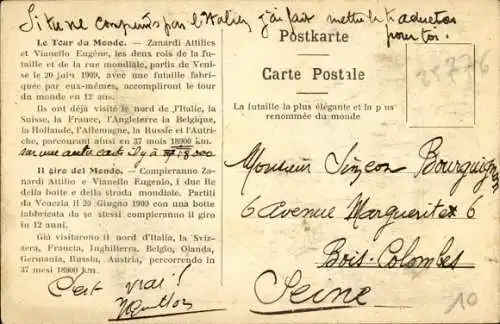 Si tu ne comprends pas l'Italien j'ai fait mettre la traduction
pour toi.
Postkarte
Carte Postale
La futaille la plus élégante et la plus
renommée du monde
25776
Le Tour du Monde. — Zanardi Attilies
et Vianello Eugène, les deux rois de la fu-
taille et de la rue mondiale, partis de Veni-
se le 20 juin 1909, avec une futaille fabri-
quée par eux-mêmes, accompliront le tour
du monde en 12 ans.
Ils ont déjà visité le nord de l'Italie, la
Suisse, la France, l'Angleterre la Belgique,
la Hollande, l'Allemagne, la Russie et l'Autri-
che, parcourant ainsi en 37 mois 18900 km.
sur une autre carte il y a 18,000
Il giro del Mondo. — Compieranno Za-
nardi Attilio e Vianello Eugenio, i due Re
della botte e della strada mondiale. Partiti
da Venezia il 20 Giugno 1909 con una botte
fabbricata da se stessi compieranno il giro
in 12 anni.
Già visitarono il nord d'Italia, la Sviz-
zera, Francia, Inghilterra, Belgio, Olanda,
Germania, Russia, Austria, percorrendo in
37 mesi 18900 km.
C'est vrai!
Monsieur Simeon Bourguignon
6 Avenue Marguerite 6
Bois-Colombes
Seine
10